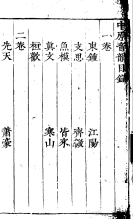 中原音韻目錄
一卷
東鍾 江陽
支思 齊微
魚模 皆來
真文 寒山
桓歡
二卷
先天 蕭豪